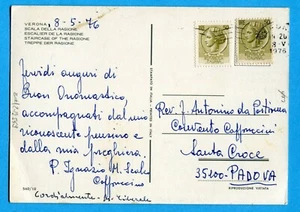 VERONA
SCALA DELLA RAGIONE
ESCALIER DE LA RAGIONE
STAIRCASE OF THE RAGIONE
TREPPE DER RAGIONE
8-5-76
Fervidi auguri di
Buon Onomastico
accompagnati dal mio
riconoscente pensiero e
dalla mia preghiera.
P. Ignazio M.
Cappuccino
Cordialmente
Rev. P. Antonino da
Convento Cappuccini
Santa Croce
35100-PADOVA
1976